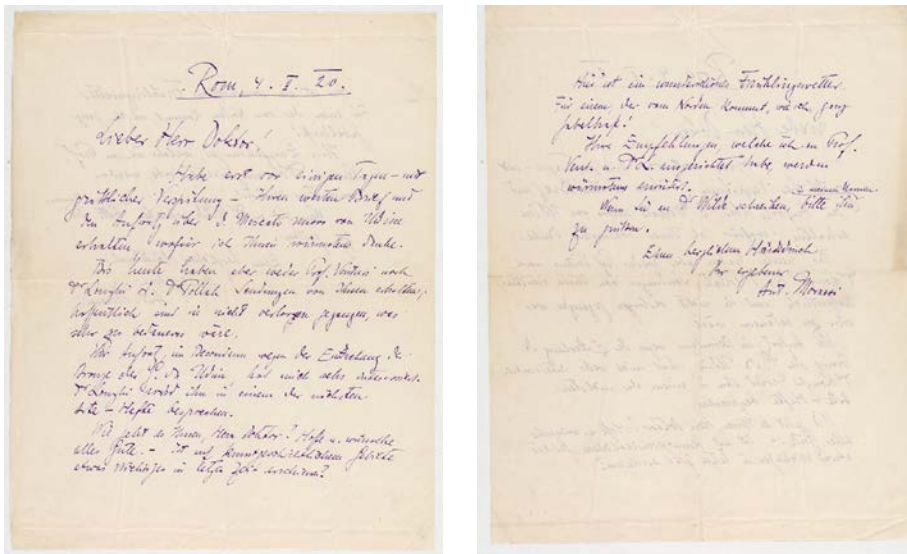 Rom, 4. II. 20.
Lieber Herr Doktor!
Habe erst vor einigen Tagen – mit
Verspätung – Ihren werten Brief und
den Aufsatz über d. Mercato nuovo von Udine
erhalten wofür ich Ihnen wärmstens danke.
Bis heute haben aber weder Prof. Venturi noch
Dr Longhi od. Dr Pollak Sendungen von Ihnen erhalten;
hoffentlich sind sie nicht verloren gegangen, was
sehr zu bedauern wäre.
Ihr Aufsatz, im Besondern wegen der Entdeckung der
Bronze des da Udine, hat mich sehr interessiert.
Dr Longhi wird ihn in einem der nächsten
Hefte besprechen.
Wie geht es Ihnen, Herr Doktor? Hoffe u. wünsche
alles Gute. – Ist auf kunstgeschichtlichem Gebiete
etwas wichtiges in letzter Zeit erschienen?
Hier ist ein wunderschönes Frühlingswetter.
Für einen der vom Norden kommt, wie ich, ganz
fabelhaft!
Ihre Empfehlungen, welche ich an Prof.
Vent. u. Dr L. ausgerichtet habe, werden
wärmstens erwidert.
Wenn Sie an Dr Wilde schreiben, bitte ihn
in meinem Namen
zu grüßen.
Einen herzlichen Händedruck
Ihr ergebener
Ant. Morassi